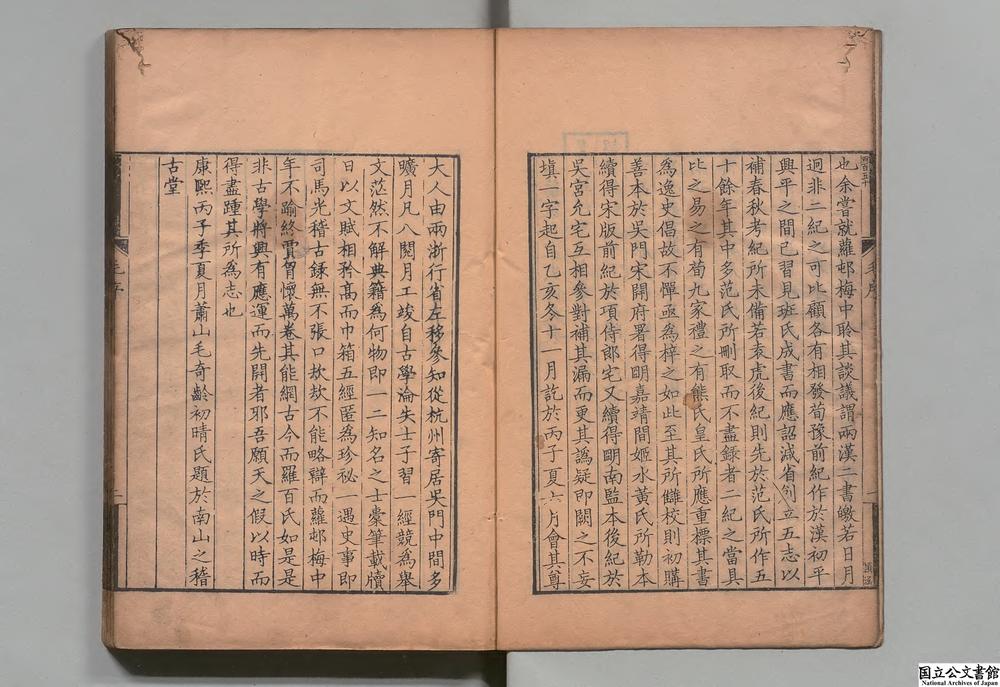 也余嘗就蘿邨梅中聆其談議謂兩漢二書皦若日月
迥非二紀之可比顧各有相發荀豫前紀作於漢初平
興平之間已習見班氏成書而應詔減省別立五志以
補春秋考紀所未備若袁虎後紀則先於范氏所作五
十餘年其中多范氏所刪取而不盡錄者二紀之當具
比之易之有荀九家禮之有熊氏皇氏所應重標其書
爲逸史倡故不憚亟爲梓之如此至其所讎校則初購
善本於吳門宋開府署得明嘉靖間姬水黃氏所勒本
續得宋版前紀於項侍郎宅又續得明南監本後紀於
吳宮允宅互相參對補其漏而更其譌疑即闕之不妄
塡一字起自乙亥冬十一月訖於丙子夏六月會其尊
大人由兩浙行省左移參知從杭州寄居吳門中間多
曠月凡八閱月工竣自古學淪失士子習一經競爲舉
文茫然不解典籍爲何物即一二知名之士橐筆載牘
日以文賦相矜高而巾箱五經匿爲珍祕一遇史事即
司馬光稽古錄無不張口欻欻不能略辯而蘿邨梅中
年不踰終賈胷懷萬卷其能網古今而羅百氏如是是
非古學將興有應運而先開者耶吾願天之假以時而
得盡踵其所爲志也
康熙丙子季夏月蕭山毛奇齡初晴氏題於南山之稽
古堂
毛序
二
毛序
国立公文書館
National Archives of Japan